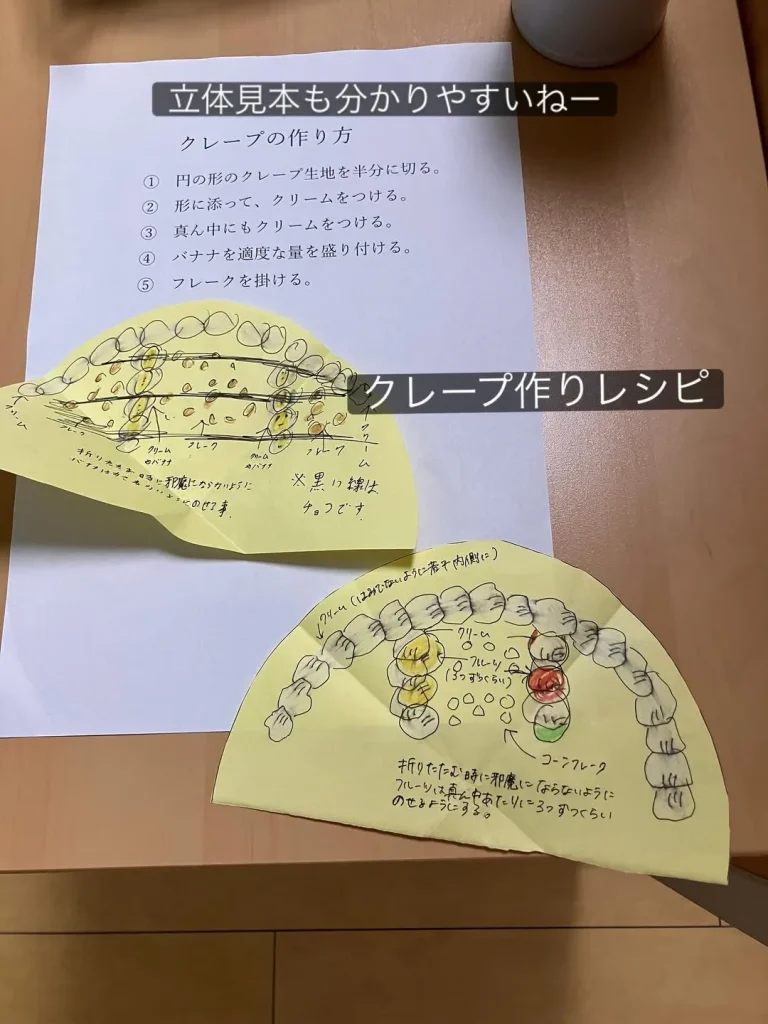 立体見本も分かりやすいねー
クレープの作り方
① 円の形のクレープ生地を半分に切る。
② 形に添って、クリームをつける。
③ 真ん中にもクリームをつける。
④ バナナを適度な量を盛り付ける。
⑤ フレークを掛ける。
クレープ作りレシピ
クリーム
フレーク
クリーム
バナナ
フレーク
クリーム
バナナ
フレーク
クリーム
折りたたむ時に邪魔にならないように
のせる事。
※黒い線は
チョコです。
クリーム(はみでないように若干内側に)
クリーム
フルーツ
(3つずつくらい)
コーンフレーク
折りたたむ時に邪魔にならないように
フルーツは真ん中あたりに3つずつくらい
のせるようにする。